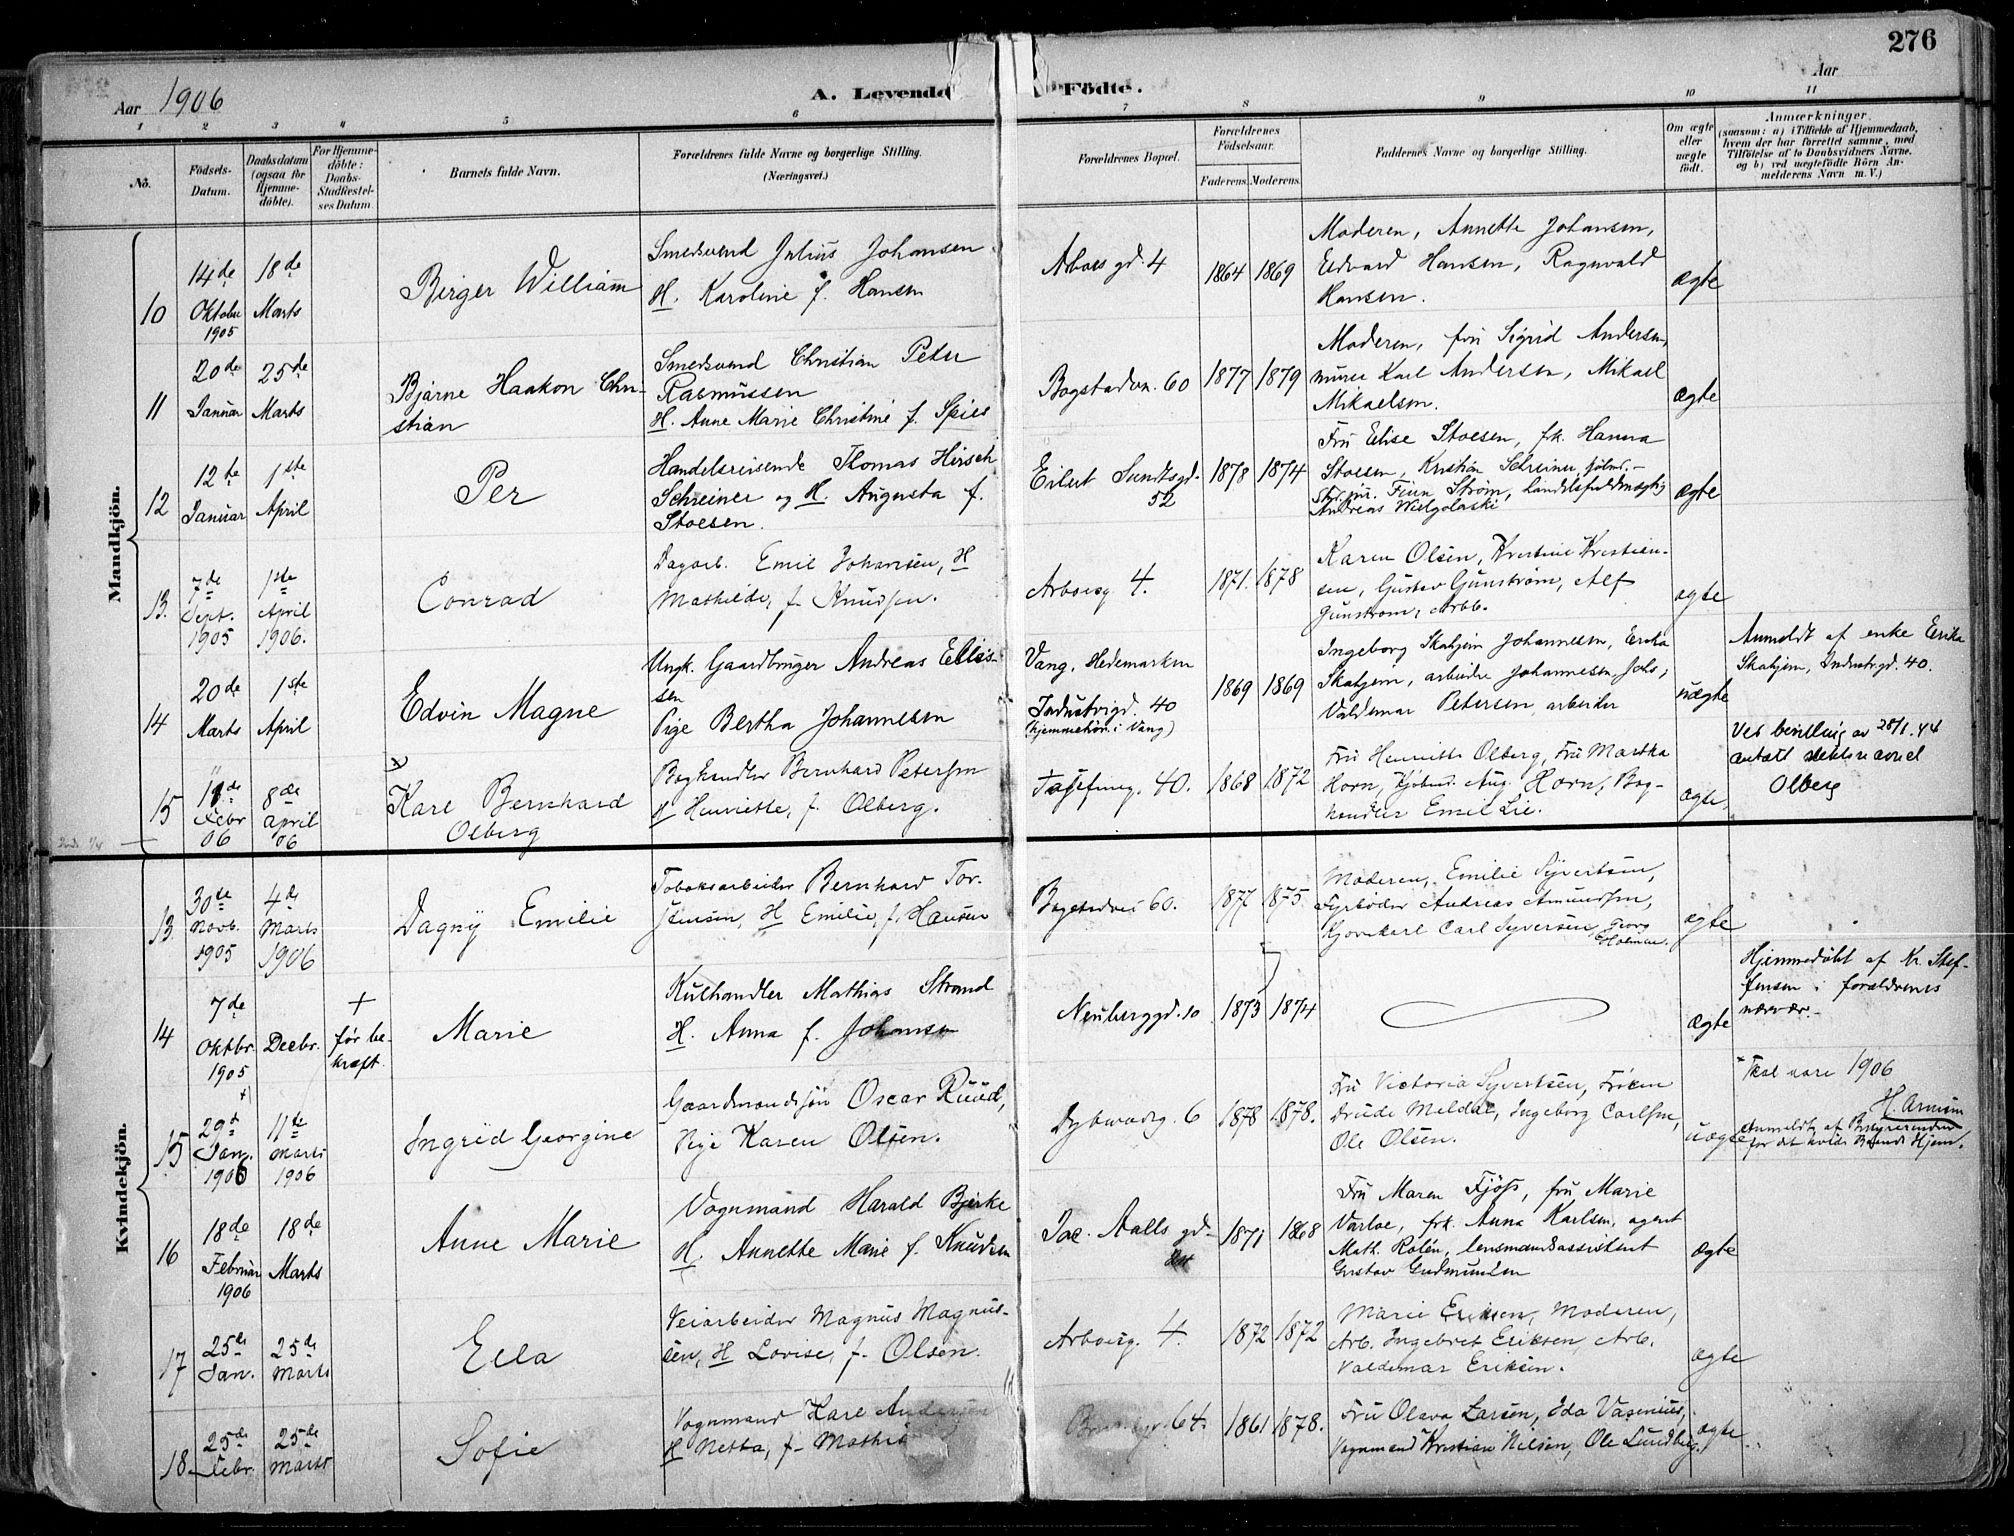 276
Aar 1906
A. Levende Födte.
Aar
1 2 3 4 5 6 7 8 9 10 11
No.
Födsels-Datum.
Daabsdatum (ogsaa for Hjemme-döbte).
For Hjemme-döbte: Daabs-Stadfæstel-ses Datum.
Barnets fulde Navn.
Forældrenes fulde Navne og borgerlige Stilling. (Næringsvei.)
Forældrenes Bopæl.
Forældrenes Födselsaar.
Faderens. Moderens.
Faddernes Navne og borgerlige Stilling.
Om ægte eller uægte födt.
Anmærkninger.
(saasom: a) i Tilfælde af Hjemmedaab,
hvem der har forrettet samme, med
Tilföielse af to Daabsvidners Navne.
og b) ved uægtefödte Börn An-
melderens Navn m. V.)
Mandkjön.
10
14de Oktober 1905
18de Marts
Birger William
Smedsvend Julius Johansen
H. Karoline f. Hansen
Arboes gd. 4
1864 1869
Moderen, Annette Johansen,
Edvard Hansen, Ragnvald
Hansen.
ægte
11
20de Januar
25de Marts
Bjarne Haakon Chri-
stian
Smedsvend Christian Peter
Rasmussen
H. Anne Marie Christine f. Spies
Bogstadvn. 60
1877 1879
Moderen, fru Sigrid Andersen,
murer Karl Andersen, Mikael
Mikaelsen.
ægte
12
12te Januar
1ste April
Per
Handelsreisende Thomas Hirsch
Schreiner og H. Augusta f.
Stoesen.
Eilert Sundtsgd.
52
1878 1874
Fru Elise Stoesen, frk. Hanna
Stoesen, Kristian Schreiner,
Finn Strøm, handelsfuldmægtig
Andreas Wielgolaski
ægte
13.
7de Sept. 1905
1ste April 1906.
Conrad
Dagarb. Emil Johansen, H
Mathilde, f. Knudsen.
Arboesg 4.
1871. 1878
Karen Olsen, Kristine Kristian-
sen, Gustav Gunstrøm, Alf
Gunstrøm, Arbb.
ægte
14
20de Marts
1ste April
Edvin Magne
Ungk. Gaardbruger Andreas Ellis-
sen
Pige Bertha Johannesen
Vang, Hedemarken
Industrigd. 40
(Hjemmehør. i Vang)
1869 1869
Ingeborg Skahjem Johannesen, Erika
Skahjem, arbeider Johannesen,
Valdemar Petersen, arbeider
uægte
Anmeldt af enke Erika
Skahjem, Industrigd. 40.
15
11de Febr 06
8de April 06
Karl Bernhard
Olberg
Boghandler Bernhard Petersen
H Henriette, f. Olberg.
40.
1868 1872
Fru Henriette Olberg, Fru Martha
Horn, Kjøbmd. Aug. Horn, Bog-
handler Emil Lie.
ægte.
Ved bevilling av 28/1.44
antatt slektsnavnet
Olberg
Kvindekjön.
13.
30te Novb. 1905
4de Marts 1906
Dagny Emilie
Tobaksarbeider Bernhard Tor-
stensen, H Emilie, f. Hansen
Bogstadvei 60.
1877 1875.
Moderen, Emilie Syvertsen,
Fyrbøder Andreas Amundsen,
Kjørekarl Carl Syversen, Georg
Holman.
ægte
14
7de Oktbr. 1905
Decbr.
+ før be-
kræft.
Marie
Kulhandler Mathias Strand
H. Anna f. Johansen
Neuberggd. 10
1873 1874
ægte
Hjemmedøbt af Kr. Stef-
fensen i forældrenes
nærvær.
15
29de Jan. 1906
11te Marts 1906
Ingrid Georgine
Gaardmandssøn Oscar Ruud,
Pige Karen Olsen.
Dybwadsg. 6
1878 1878.
Fru Victoria Syvertsen, Frøken
Trude Meldal, Ingeborg Carlsen,
Ole Olsen.
uægte
Skal være 1906
H. Arnesen
Anmeldt af Bestyrerinden
for det hvide Baands Hjem.
16
18de Februar 1906
18de Marts
Anne Marie
Vognmand Harald Bjerke
H. Annette Marie f. Knudsen
Jac. Aalls gd.
1871 1868
Fru Maren Fjøss, fru Marie
Varloe, frk. Anna Karlsen, agent
Math. Rolén, lensmandsassistent
Gustav Gudmundsen
ægte
17
25de Jan.
25de Marts
Ella
Veiarbeider Magnus Magnus-
sen, H Lovise, f. Olsen.
Arboesg. 4.
1872 1872
Marie Eriksen, Moderen,
Arb. Ingebret Eriksen, Arb.
Valdemar Eriksen.
ægte
18
25de Febr.
25de Marts
Sofie
Vognmand Karl Andersen
H Netta, f.
64.
1861 1878.
Fru Olava Larsen, Eda Vasenius,
Vognmand Kristian Nilsen, Ole Lundberg.
ægte.